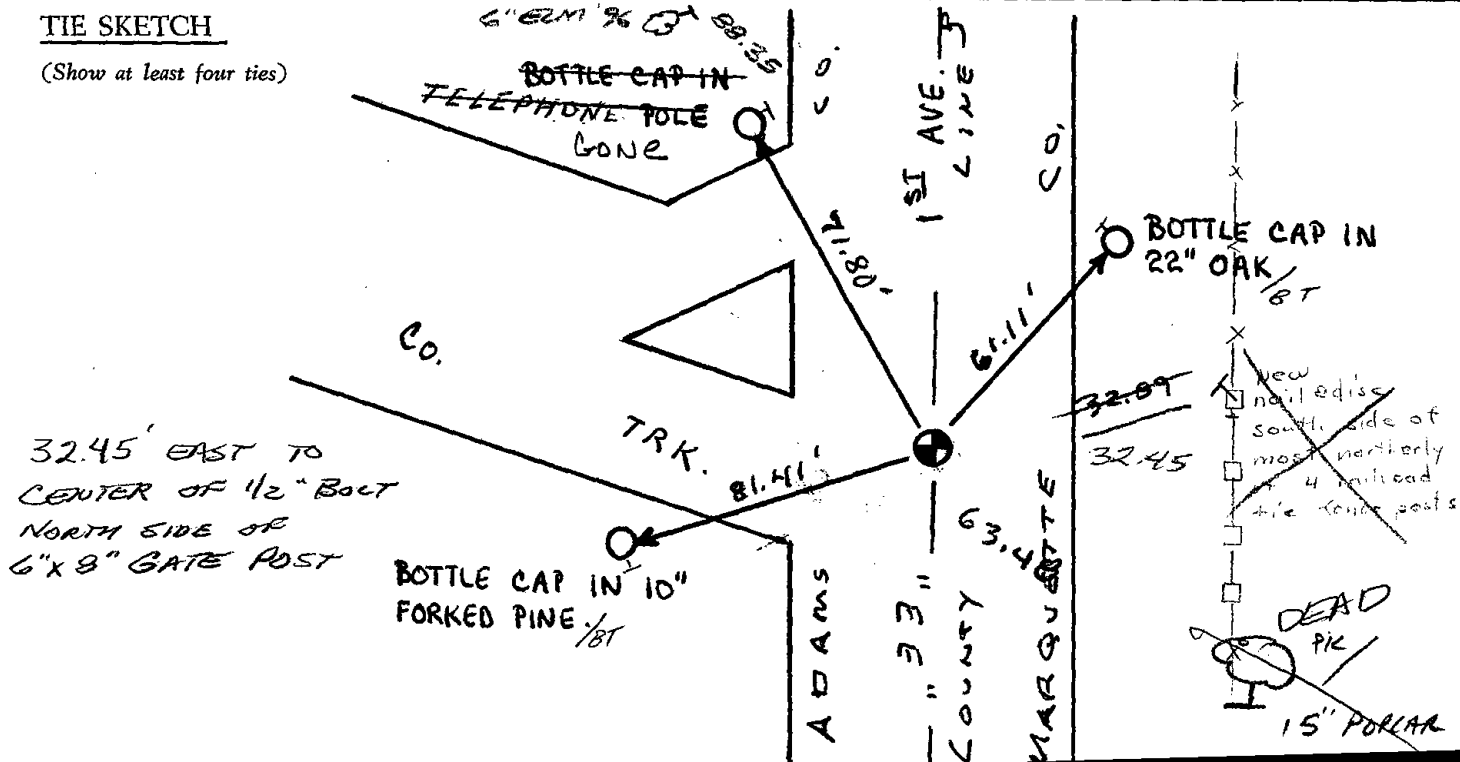 TIE SKETCH
(Show at least four ties)
6" ELM '96
88.35
BOTTLE CAP IN
TELEPHONE POLE
GONE
CO.
1ST AVE.
LINE
CO.
BOTTLE CAP IN
22" OAK
/BT
71.80'
61.11'
Co.
TRK.
32.89
32.45
new
nail & disc
south side of
most northerly
4 railroad
tie fence posts
32.45' EAST TO
CENTER OF 1/2" BOLT
NORTH SIDE OF
6"x8" GATE POST
81.41'
BOTTLE CAP IN 10"
FORKED PINE /BT
ADAMS
"33"
COUNTY
MARQUETTE
DEAD
PK
15" POPLAR